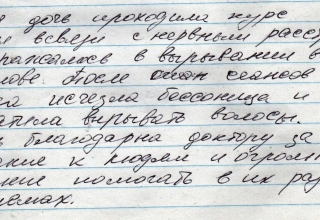 дочь проходила курс
всвязи с нервным расст
ражалось в вырывании в
лове. После сеансов
га исчезла бессоница и
атила вырывать волосы.
благодарна доктору за
ение к людям и огромн
ние помогать в их раз
лемах.